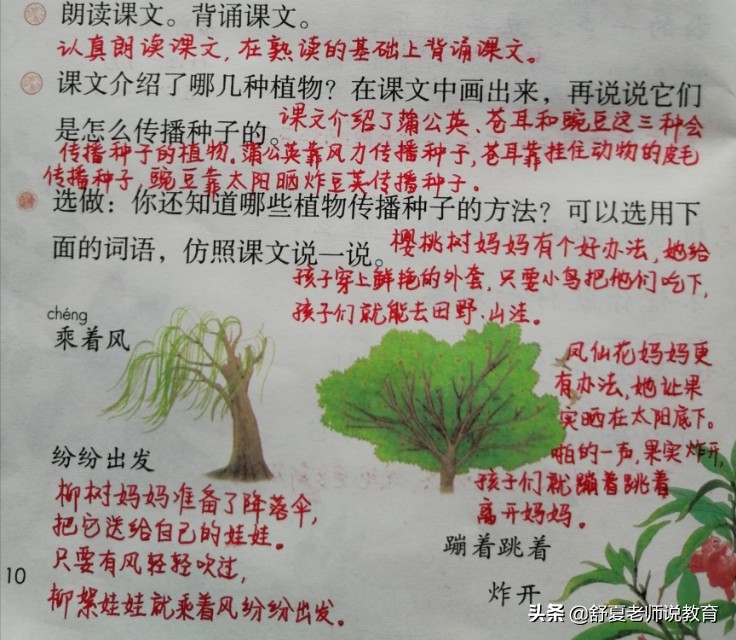 朗读课文。背诵课文。
认真朗读课文，在熟读的基础上背诵课文。
课文介绍了哪几种植物？在课文中画出来，再说说它们
是怎么传播种子的。
课文介绍了蒲公英、苍耳和豌豆这三种会
传播种子的植物。蒲公英靠风力传播种子，苍耳靠挂住动物的皮毛
传播种子，豌豆靠太阳晒炸豆荚传播种子。
选做：你还知道哪些植物传播种子的方法？可以选用下
面的词语，仿照课文说一说。
樱桃树妈妈有个好办法，她给
孩子穿上鲜艳的外套，只要小鸟把他们吃下，
孩子们就能去田野、山洼。
chéng
乘着风
凤仙花妈妈更
有办法，她让果
实晒在太阳底下。
啪的一声，果实炸开，
孩子们就蹦着跳着
离开妈妈。
纷纷出发
柳树妈妈准备了降落伞，
把它送给自己的娃娃。
只要有风轻轻吹过，
柳絮娃娃就乘着风纷纷出发。
蹦着跳着
炸开
10
头条 @舒夏老师说教育